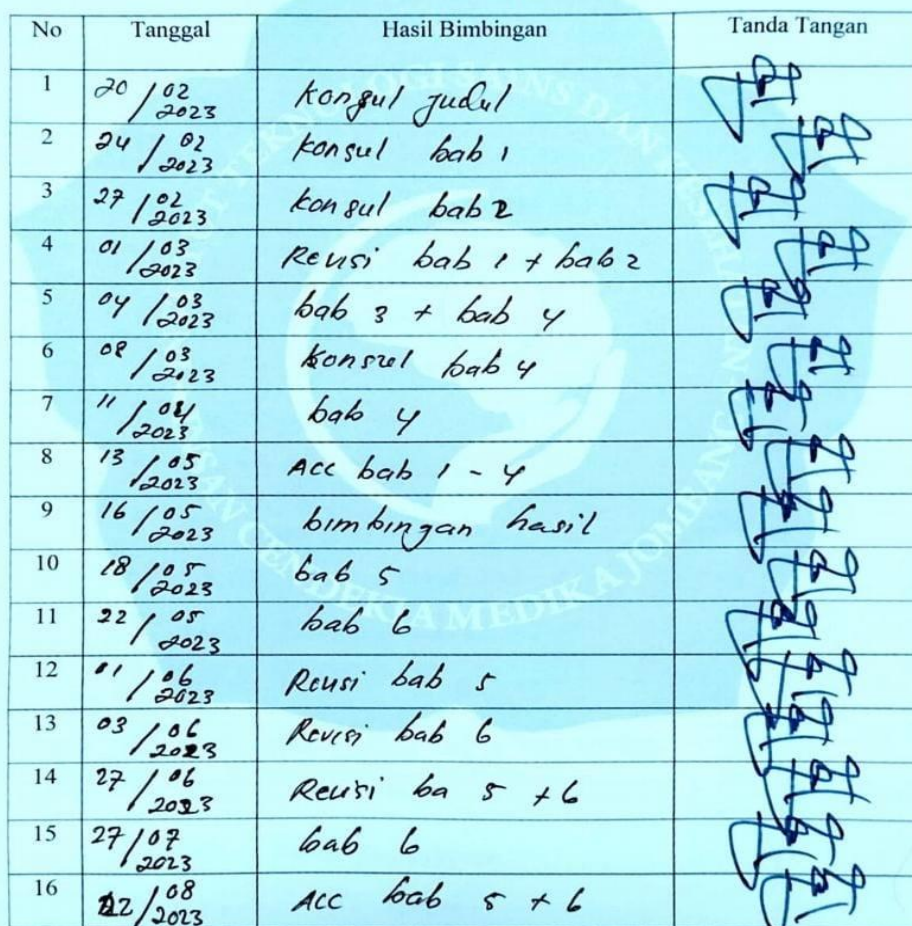 No Tanggal Hasil Bimbingan Tanda Tangan
1 20/02 2023 Konsul Judul
2 24/02 2023 Konsul bab 1
3 27/02 2023 Konsul bab 2
4 01/03 2023 Revisi bab 1 + bab 2
5 04/03 2023 bab 3 + bab 4
6 08/03 2023 Konsul bab 4
7 11/04 2023 bab 4
8 13/05 2023 Acc bab 1 - 4
9 16/05 2023 bimbingan hasil
10 18/05 2023 bab 5
11 22/05 2023 bab 6
12 01/06 2023 Revisi bab 5
13 03/06 2023 Revisi bab 6
14 27/06 2023 Revisi ba 5 + 6
15 27/07 2023 bab 6
16 22/08 2023 Acc bab 5 + 6